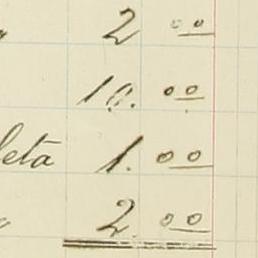 2 00
10. 00
leta 1. 00
2. 00